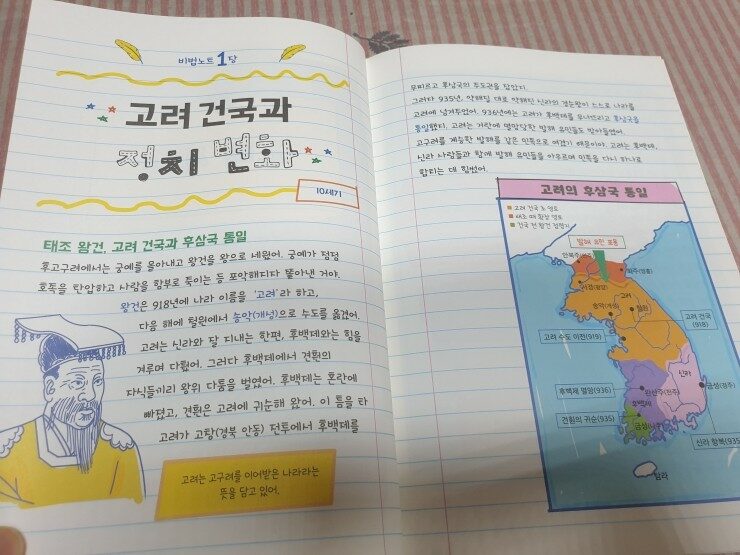 비법노트 1장
고려 건국과
정치 변화
10세기
태조 왕건, 고려 건국과 후삼국 통일
후고구려에서는 궁예를 몰아내고 왕건을 왕으로 세웠어. 궁예가 점점
호족을 탄압하고 사람을 함부로 죽이는 등 포악해지다 쫓아낸 거야.
왕건은 918년에 나라 이름을 '고려'라 하고,
다음 해에 철원에서 송악(개성)으로 수도를 옮겼어.
고려는 신라와 잘 지내는 한편, 후백제와는 힘을
겨루며 다퉜어. 그러다 후백제에서 견훤의
자식들끼리 왕위 다툼을 벌였어. 후백제는 혼란에
빠졌고, 견훤은 고려에 귀순해 왔어. 이 틈을 타
고려가 고창(경북 안동) 전투에서 후백제를
고려는 고구려를 이어받은 나라라는
뜻을 담고 있어.
무찌르고 후삼국의 주도권을 잡았지.
그러다 935년, 약해질 대로 약해진 신라의 경순왕이 스스로 나라를
고려에 넘겨주었어. 936년에는 고려가 후백제를 무너뜨리고 후삼국을
통일했지. 고려는 거란에 멸망당한 발해 유민들도 받아들였어.
고구려를 계승한 발해를 같은 민족으로 여겼기 때문이야. 고려는 후백제,
신라 사람들과 함께 발해 유민들을 아우르며 민족을 다시 하나로
합치는 데 힘썼어.
고려의 후삼국 통일
고려 건국 초 영토
태조 때 확장 영토
건국 전 왕건 점령지
발해 유민 포용
안북부
서경(평양)
화주(영흥)
고려
송악(개성)
철원
고려 건국
(918)
고려 수도 이전(919)
신라
후백제 멸망(936)
완산주(전주)
금성(경주)
후백제
견훤의 귀순(935)
금성(나주)
신라 항복(935)
탐라